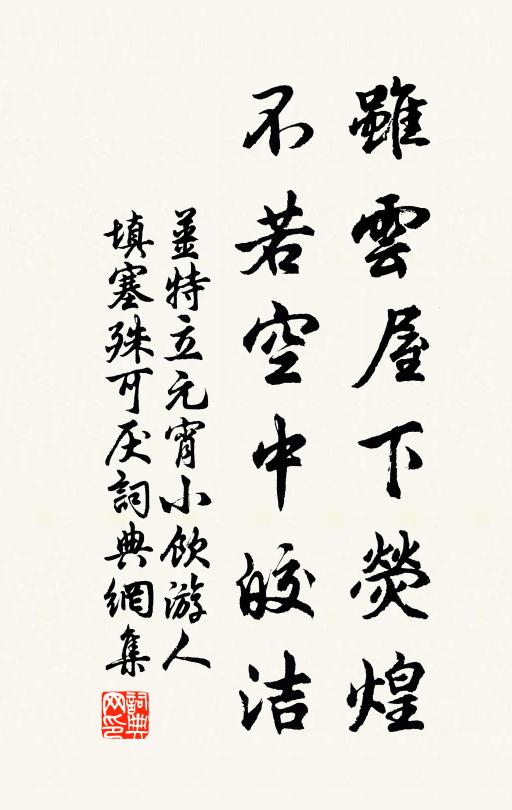 雖雲屋下熒煌
不若空中皎洁
薑特立元宵小飲游人
填塞殊可厌詞典網集
詞典网印